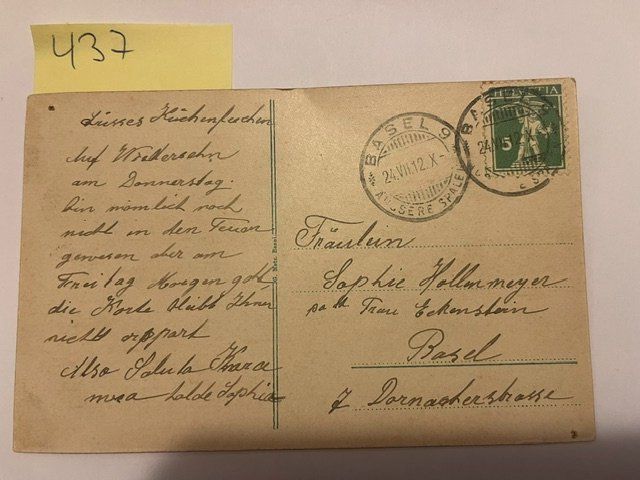 437
Süsses Küchenfeechen
Auf Wiedersehn
am Donnerstag.
bin nämlich noch
nicht in den Ferien
gewesen aber am
Freitag Morgen
die Karte bleibt Ihnen
nicht
Also Saluta Kara
mea holde Sophie
G. Metz, Basel
BASEL 9
24.VII.12.X-
AUSSERE SPALE
HELVETIA
5
BASEL
24.VII.12
Fräulein
Sophie Hollenmeyer
Frau Eckenstein
Basel
7 Dornacherstrasse